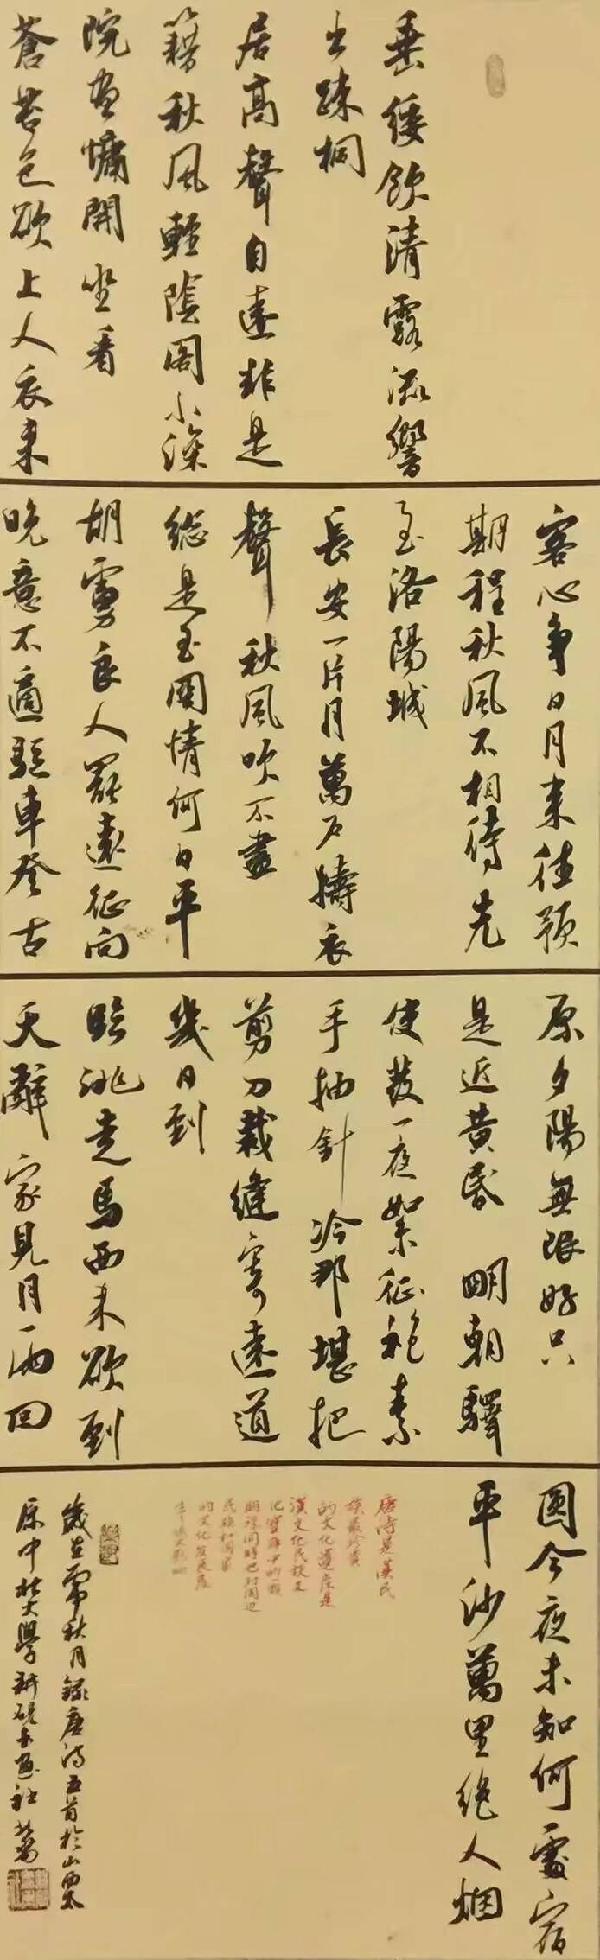 垂緌飲清露流響
出疎桐
居高聲自遠非是
籍秋風輕陰閣小深
院晝慵開坐看
蒼苔色欲上人衣来
客心爭日月来往預
期程秋風不相待先
至洛陽城
長安一片月萬户擣衣
聲秋風吹不盡
総是玉関情何日平
胡虜良人罷遠征向
晚意不適驅車登古
原夕陽無限好只
是近黃昏明朝驛
使發一夜絮征袍素
手抽針冷那堪把
剪刀裁縫寄遠道
幾日到
臨洮走馬西来欲到
天辭家見月兩回
圓今夜未知何處宿
平沙萬里絕人烟
唐诗是漢民
族最珍貴
的文化遺産是
漢文化民族文
歲在 秋月録唐诗五首於山西太
原中北大學